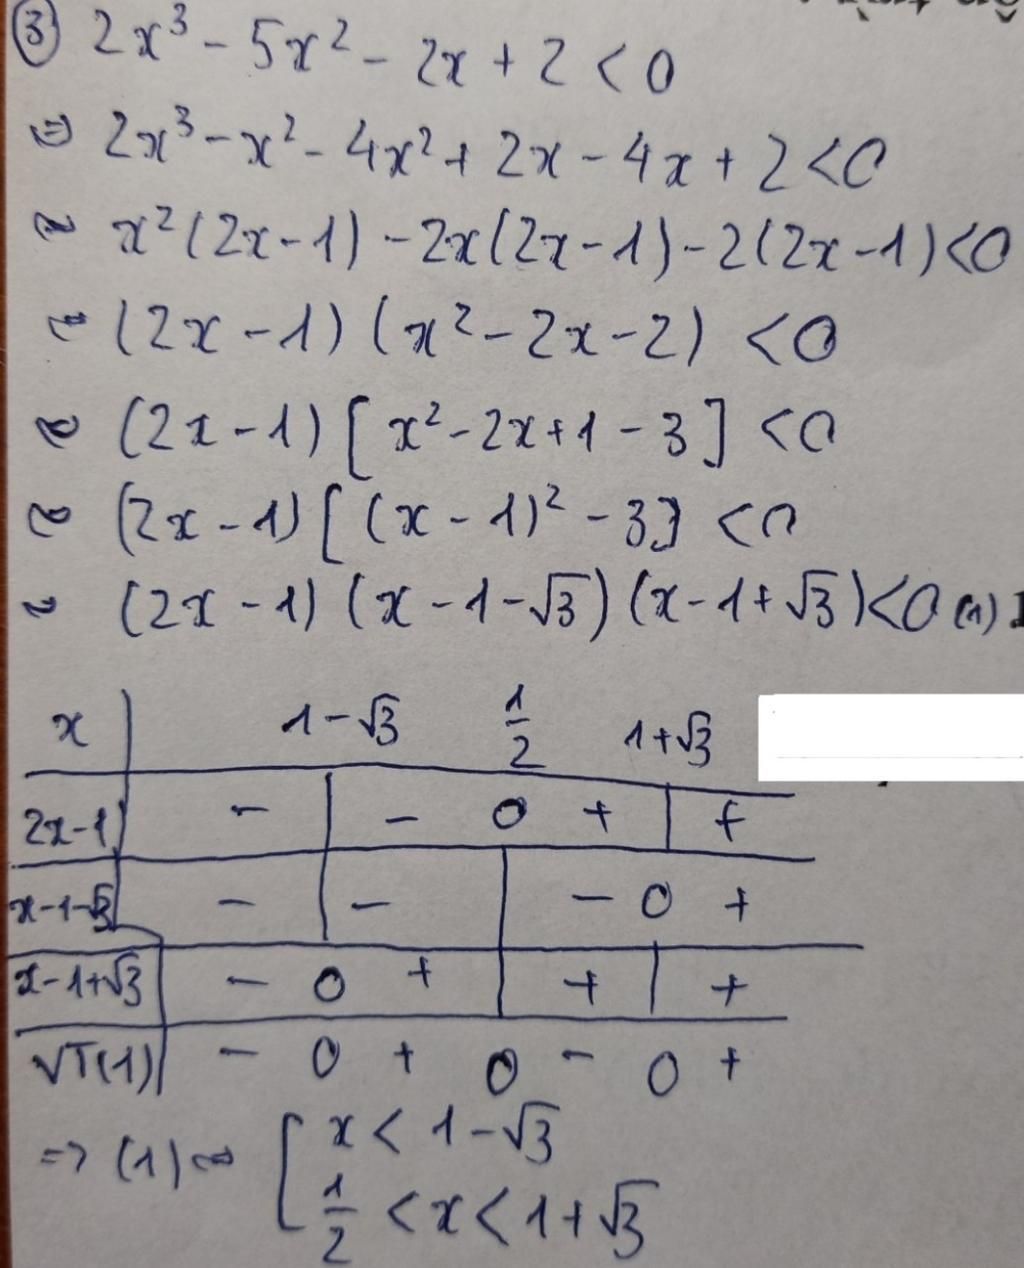 ③ 2x³ - 5x² - 2x + 2 < 0
⇔ 2x³ - x² - 4x² + 2x - 4x + 2 < 0
⇔ x²(2x-1) - 2x(2x-1) - 2(2x-1) < 0
⇔ (2x-1)(x² - 2x - 2) < 0
⇔ (2x-1)[x² - 2x + 1 - 3] < 0
⇔ (2x-1)[(x-1)² - 3] < 0
⇔ (2x-1)(x-1-√3)(x-1+√3) < 0 (1)
x | 1-√3 1/2 1+√3
2x-1 | - | - 0 + | +
x-1-√3 | - | - | - 0 +
x-1+√3 | - 0 + | + | +
VT(1) | - 0 + 0 - 0 +
=> (1) ⇔ [ x < 1-√3
1/2 < x < 1+√3